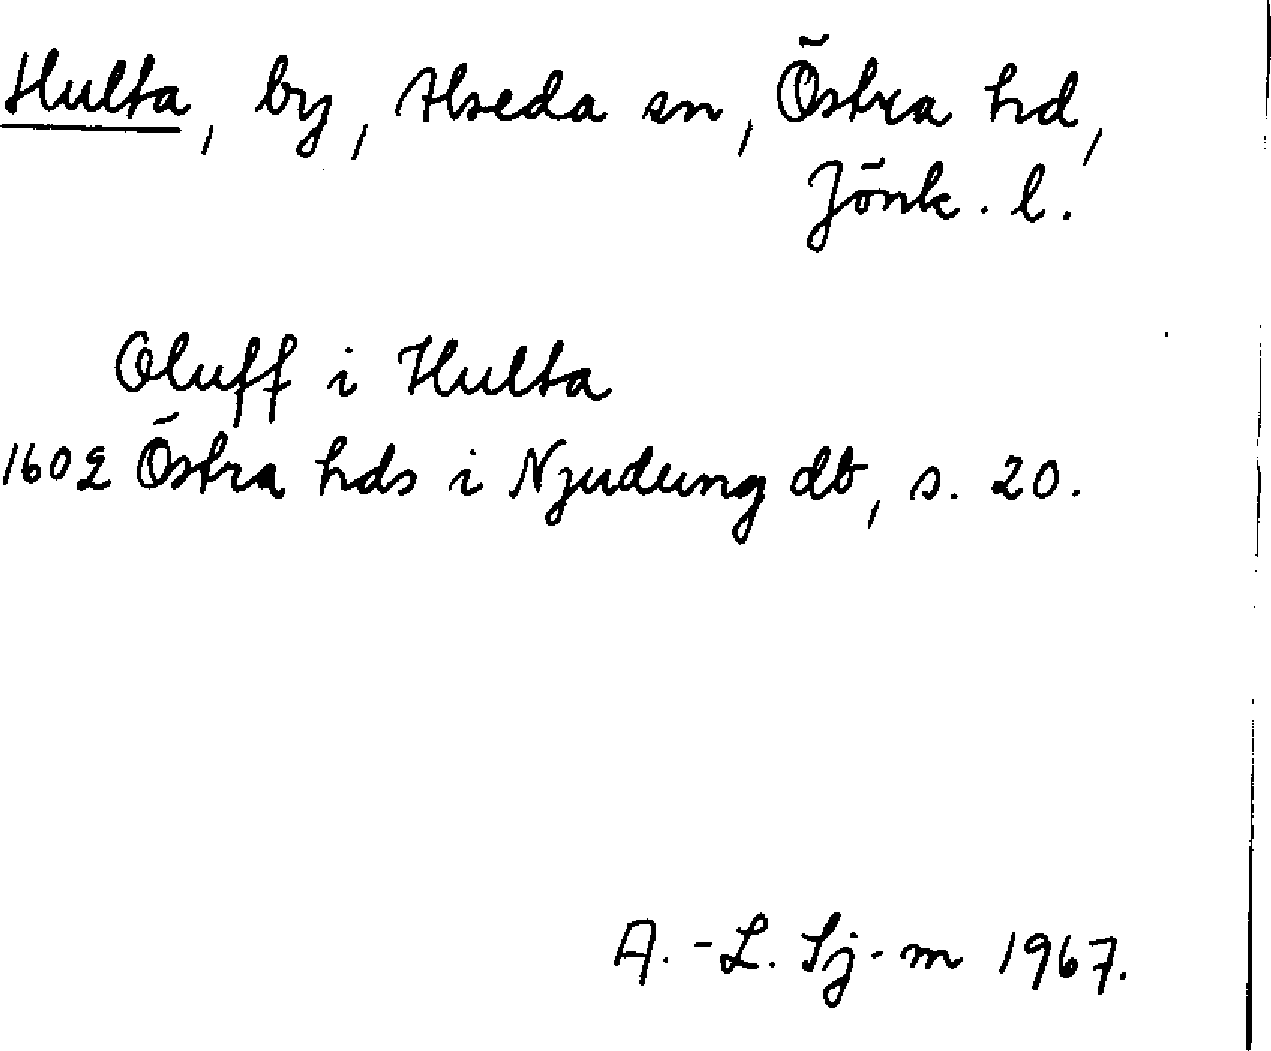 Hulta, by, Alseda sn, Östra hd,
Jönk. l.
Oluff i Hulta
1602 Östra hds i Njudung db, s. 20.
A.-L. Sj-m 1967.